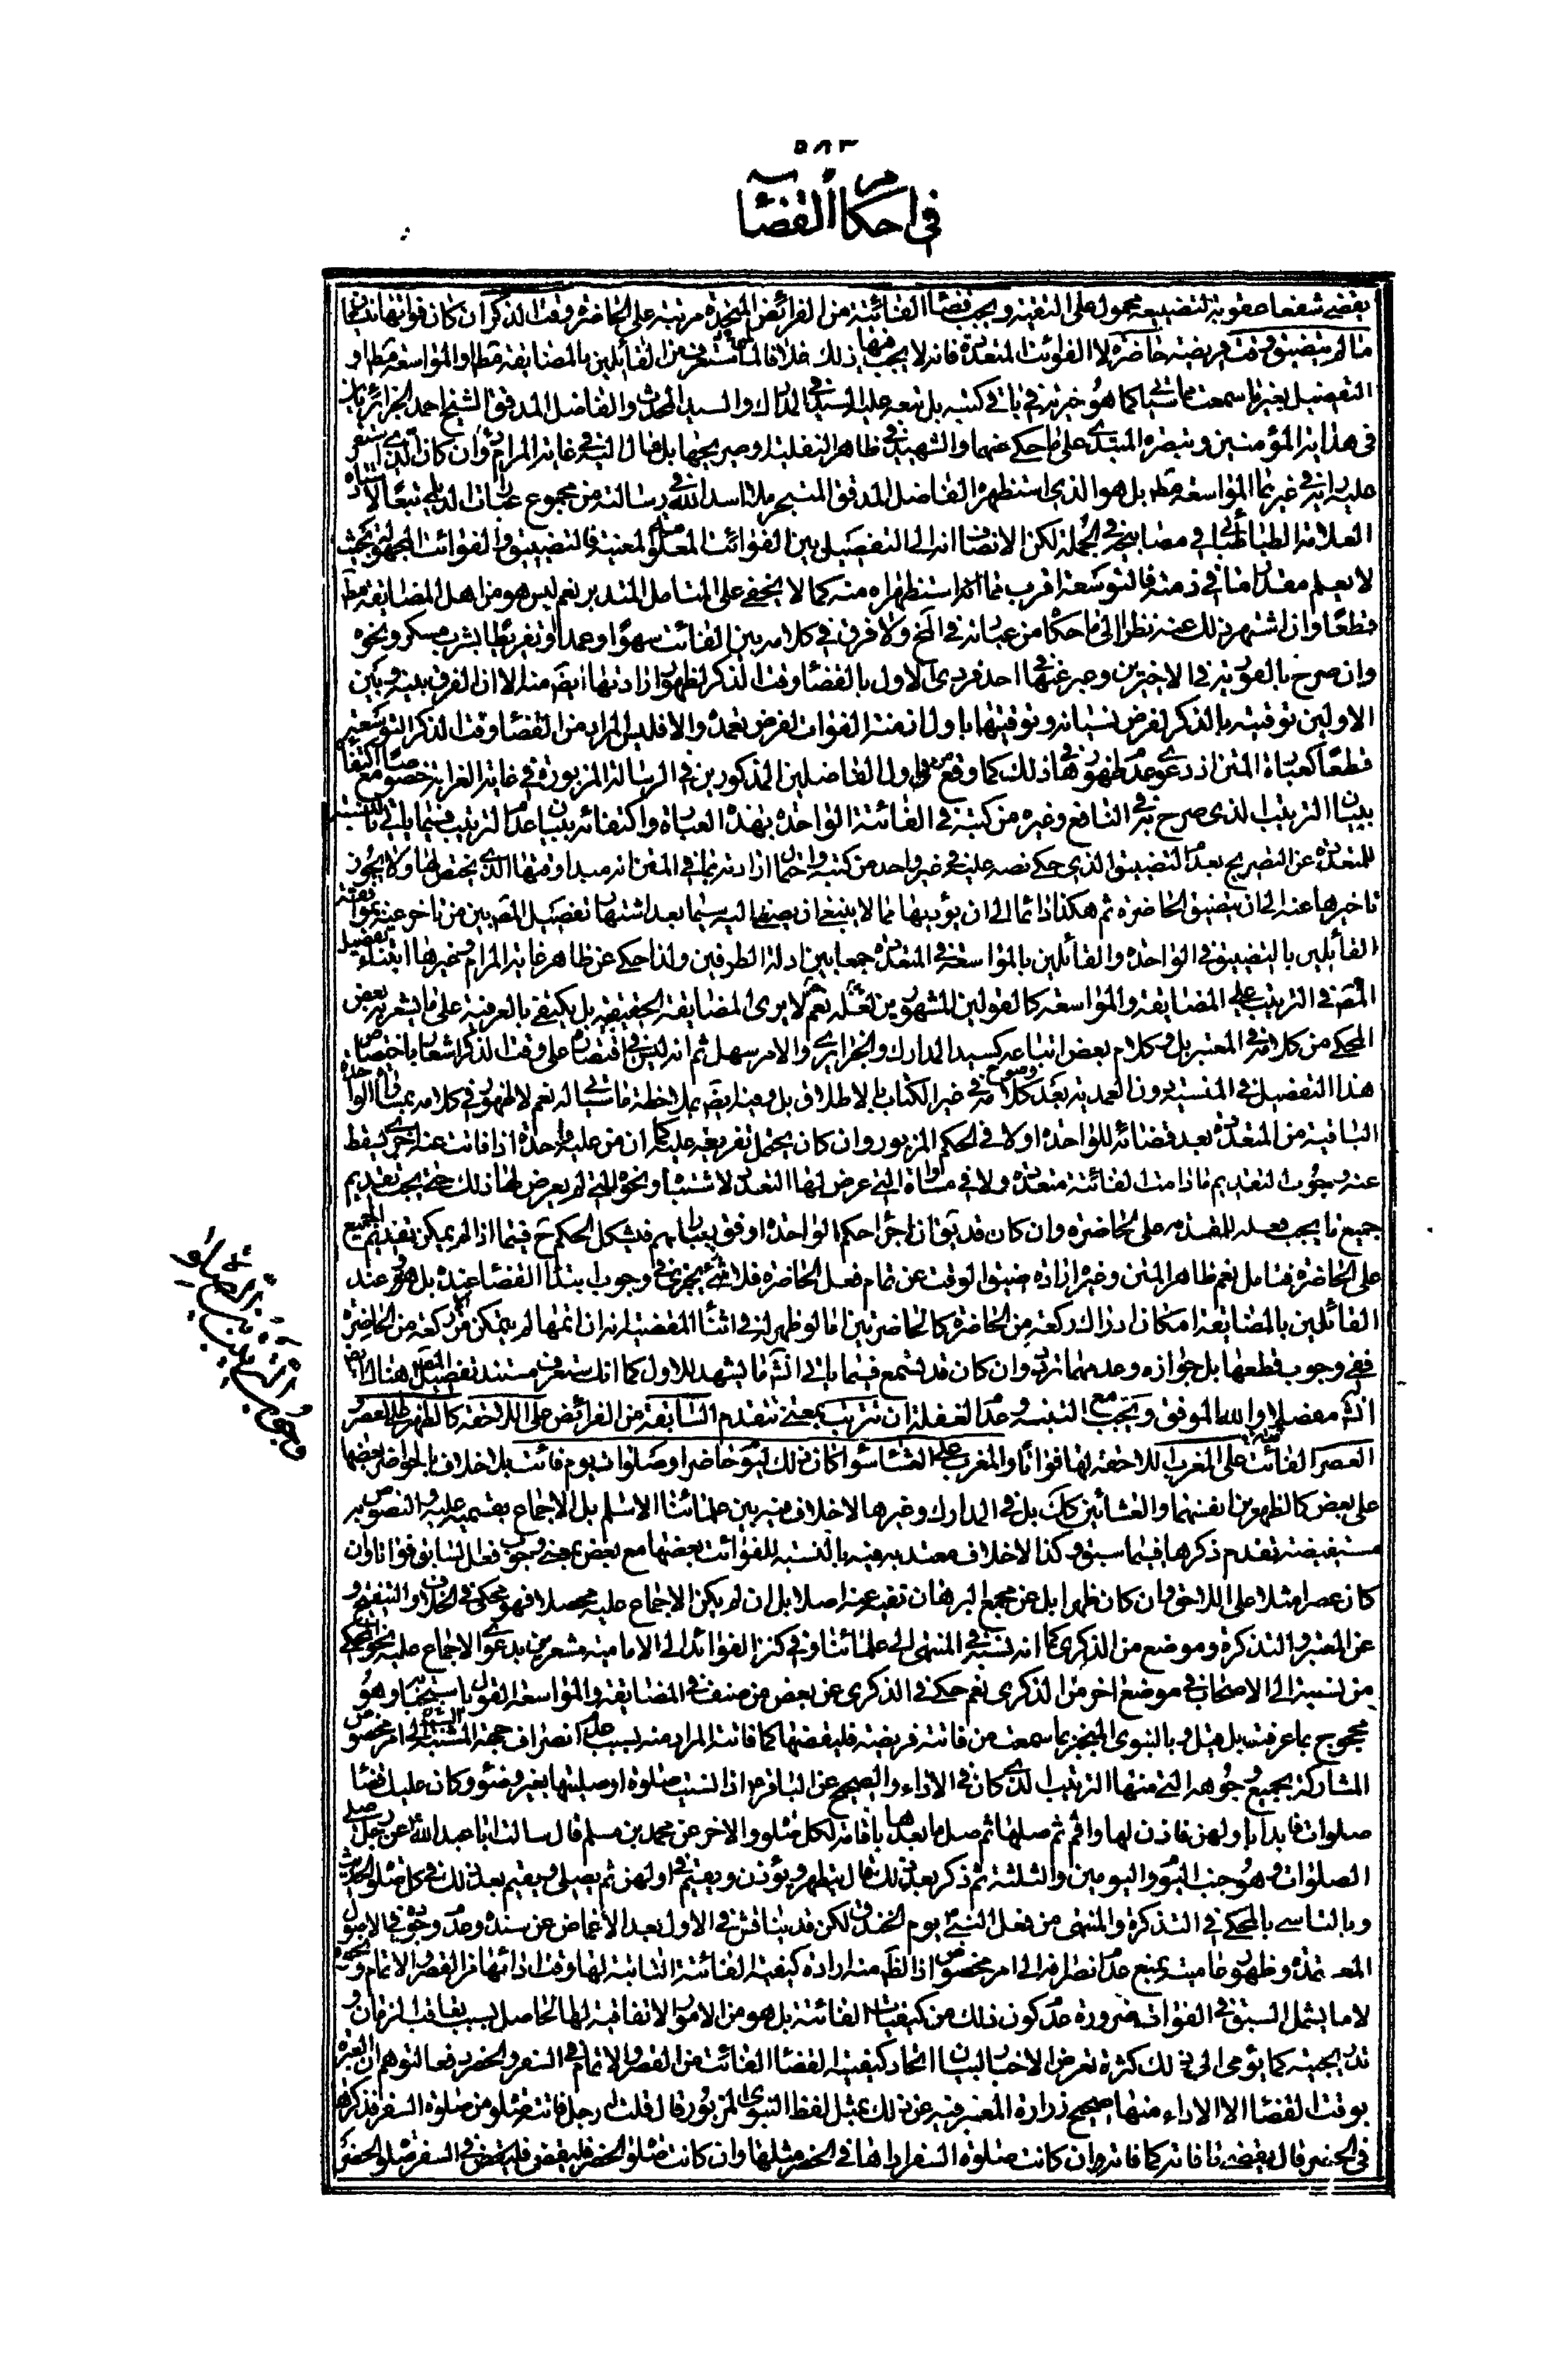 ٥٨٣
في احكام القضاء
يقضي شفعا عقوبة لتضييعه محمول على التقية ويجب قضاء الفائتة من الفرائض المتحدة مرتبة على الحاضرة وقت الذكر ان كان فواتها نسيانا
ما لم يتضيق وقت فريضة حاضرة لا الفوائت المتعددة فانه لا يجب فيها ذلك خلافا لما ستعرفه من القائلين بالمضايقة مط والمواسعة مط او
التفصيل بغير ما سمعت مما سيأتي كما هو خيرته في باقي كتبه بل تبعه عليه السيد في المدارك والسيد المحدث والفاضل المدقق الشيخ احمد الجزائري
في هداية المؤمنين وتبصرة المبتدي على ما حكي عنهما والشهيد في ظاهر النفلية او صريحها بل مال اليه في غاية المرام وان كان الذي استقر
عليه رايه في غيرها المواسعة مط بل هو الذي استظهره الفاضل المدقق المتبحر ملا اسد الله في رسالته من مجموع عبارات الديلمي تبعا لاستاده
العلامة الطباطبائي في مصابيحه في الجملة لكن الانصاف انه الى التفصيل بين الفوائت المعلومة المعينة فالتضييق والفوائت المجهولة بحيث
لا يعلم مقدار ما في ذمته فالتوسعة اقرب مما استظهراه منه كما لا يخفى على المتامل المتدبر نعم ليس هو من اهل المضايقة مط
قطعا وان اشتهر ذلك عنه نظرا الى ما حكاه من عباراته في الخ ولا فرق في كلامه بين الفائت سهوا او عمدا او تفريطا بشرب مسكر ونحوه
وان صرح بالفورية في الاخيرين وعبر عنها في احد فردي الاول بالقضاء وقت الذكر لظهور ارادتها ايضا منه الا ان الفرق بينه وبين
الاولين توقيته بالذكر لفرض نسيانه وتوقيتها باول ازمنة الفوات لفرض تعمده والا فليس المراد من القضاء وقت الذكر التوسعة
قطعا كعبارة المتن اذ دعوى عدم ظهورها في ذلك كما وقع من اول الفاضلين المذكورين في الرسالة المزبورة في غاية الغرابة خصوصا مع اكتفائه
ببيان الترتيب الذي صرح به في النافع وغيره من كتبه في الفائتة الواحدة بهذه العبارة واكتفائه ببيان عدم الترتيب فيما ياتي بالنسبة
للمتعددة عن التصريح بعدم التضييق الذي حكي نصه عليه في غير واحد من كتبه واحتمال ارادته بما في المتن انه مبدا وقتها الذي يختص بها ولا يجوز
تاخيرها عنه الى ان يتضيق الحاضرة ثم هكذا دائما الى ان يؤديها مما لا ينبغي ان يصغى اليه سيما بعد اشتهار تفصيل المص بين من تاخر عنه وموافقته
القائلين بالتضييق في الواحدة والقائلين بالمواسعة في المتعددة جمعا بين ادلة الطرفين ولذا حكي عن ظاهر غاية المرام وغيرها ابتناء تفصيل
المص في الترتيب على المضايقة والمواسعة كالقولين المشهورين نعم لا يرى المضايقة الحقيقية بل يكتفي بالعرفية على ما يشعر به بعض
المحكي من كلامه في المعتبر بل في كلام بعض اتباعه كسيد المدارك والجزائري والامر سهل ثم انه ليس في اقتصاره على وقت الذكر اشعار باختصاص
هذا التفصيل في المنسية دون العمدية بعد وضوح كلامه في غير الكتاب بالاطلاق بل وفيه ايضا بملاحظة ما سياتي له نعم لا ظهور في كلامه بمساواة الواحدة
الباقية من المتعددة بعد قضائه للواحدة اولا في الحكم المزبور وان كان يحتمل تفريعه عليه كما ان من عليه واحدة اذا فاتت عنه اخرى يسقط
عنه وجوب التقديم ما دامت الفائتة متعددة ولا في مساواة التي عرض لها التعدد لاشتباه ونحوه للتي لم يعرض لها ذلك حتى يجب تقديم
جميع ما يجب فعله للمقدمة على الحاضرة وان كان قد يق ان اجراء حكم الواحدة اوفق بعباراتهم فيشكل الحكم ح فيما اذا لم يمكن تقديم الجميع
على الحاضرة فتامل نعم ظاهر المتن وغيره ارادة ضيق الوقت عن تمام فعل الحاضرة فلا يجزي في وجوب ابتداء القضاء عنده بل هو عند
القائلين بالمضايقة امكان ادراك ركعة من الحاضرة كالحاضرتين اما لو ظهر له في اثناء المقضية انه ان اتمها لم يتمكن من ركعة من الحاضرة
ففي وجوب قطعها بل جوازه وعدمهما تردد وان كان قد تسمع فيما ياتي انش ما يشهد للاول كما انك ستعرف مستند تفصيل المص هناك ايضا
انش مفصلا والله الموفق ويجب مع التنبه وعدم الغفلة ان تترتب بمعنى تتقدم السابقة من الفرائض على اللاحقة كالظهر على العصر و
العصر الفائتة على المغرب اللاحقة لها فواتا والمغرب على العشاء سواء كان ذلك ليوم حاضر او صلوات يوم فائت بلا خلاف في الحواضر بعضها
على بعض كالظهرين انفسهما والعشائين كك بل في المدارك وغيرها لا خلاف فيه بين علمائنا الاسلام بل الاجماع بقسميه عليه والنصوص به
مستفيضة تقدم ذكرها فيما سبق وكذا لا خلاف معتد به فيه بالنسبة للفوائت بعضها مع بعض بمعنى وجوب فعل السابق فواتا وان
كان عصرا مثلا على اللاحق وان كان ظهرا بل عن مجمع البرهان نفيه عنه اصلا بل ان لم يكن الاجماع عليه محصلا فهو محكي في الخلاف والتنقيح و
عن المعتبر والتذكرة وموضع من الذكرى كما انه نسبه في المنتهى الى علمائنا وفي كنز الفوائد الى الامامية مشعرين بدعوى الاجماع عليه نحو المحكي
من نسبته الى الاصحاب في موضع اخر من الذكرى نعم حكي في الذكرى عن بعض من صنف في المضايقة والمواسعة القول باستحبابه وهو
محجوج بما عرفت بل قيل وبالنبوي المنجبر بما سمعت من فاتته فريضة فليقضها كما فاتته المراد منه بسبب عدم انصراف جهة المشابهة الى امر مخصوص
المشاركة بجميع وجوهه التي منها الترتيب الذي كان في الاداء والصحيح عن الباقر اذا نسيت صلوة او صليتها بغير وضوء وكان عليك قضاء
صلوات فابدا باولهن فاذن لها واقم ثم صلها ثم صل ما بعدها باقامة لكل صلوة والاخر عن محمد بن مسلم قال سالت ابا عبد الله عن رجل صلى
الصلوات وهو جنب اليوم واليومين والثلثة ثم ذكر بعد ذلك قال يتطهر ويؤذن ويقيم في اولهن ثم يصلي ويقيم بعد ذلك في كل صلوة الحديث
وبالتاسي بالمحكي في التذكرة والمنتهى من فعل النبي يوم الخندق لكن قد يناقش في الاول بعد الاغماض عن سنده وعدم وجوده في الاصول
المعتمدة وظهور عاميته بمنع عدم انصرافه الى امر مخصوص اذ الظ منه ارادة كيفية الفائتة الثابتة لها وقت ادائها من القصر والاتمام ونحوه
لا ما يشمل السبق في الفوات ضرورة عدم كون ذلك من كيفيات الفائتة بل هو من الامور الاتفاقية لها الحاصل بسبب تعاقب الزمان و
تدريجيته كما يؤمي الى ذلك كثرة تعرض الاخبار لبيان اتحاد كيفية القضاء الفائت من القصر والاتمام في السفر والحضر دفعا لتوهم ان العبرة
بوقت القضاء لا الاداء منها صحيح زرارة المعبر فيه عن ذلك بمثل لفظ النبوي المزبور قال قلت له رجل فاتته صلوة من صلوة السفر فذكرها
في الحضر قال يقضي ما فاته كما فاته وان كانت صلوة السفر اداها في الحضر مثلها وان كانت صلوة الحضر فليقض في السفر صلوة الحضر
وجوب الترتيب بين الصلوات